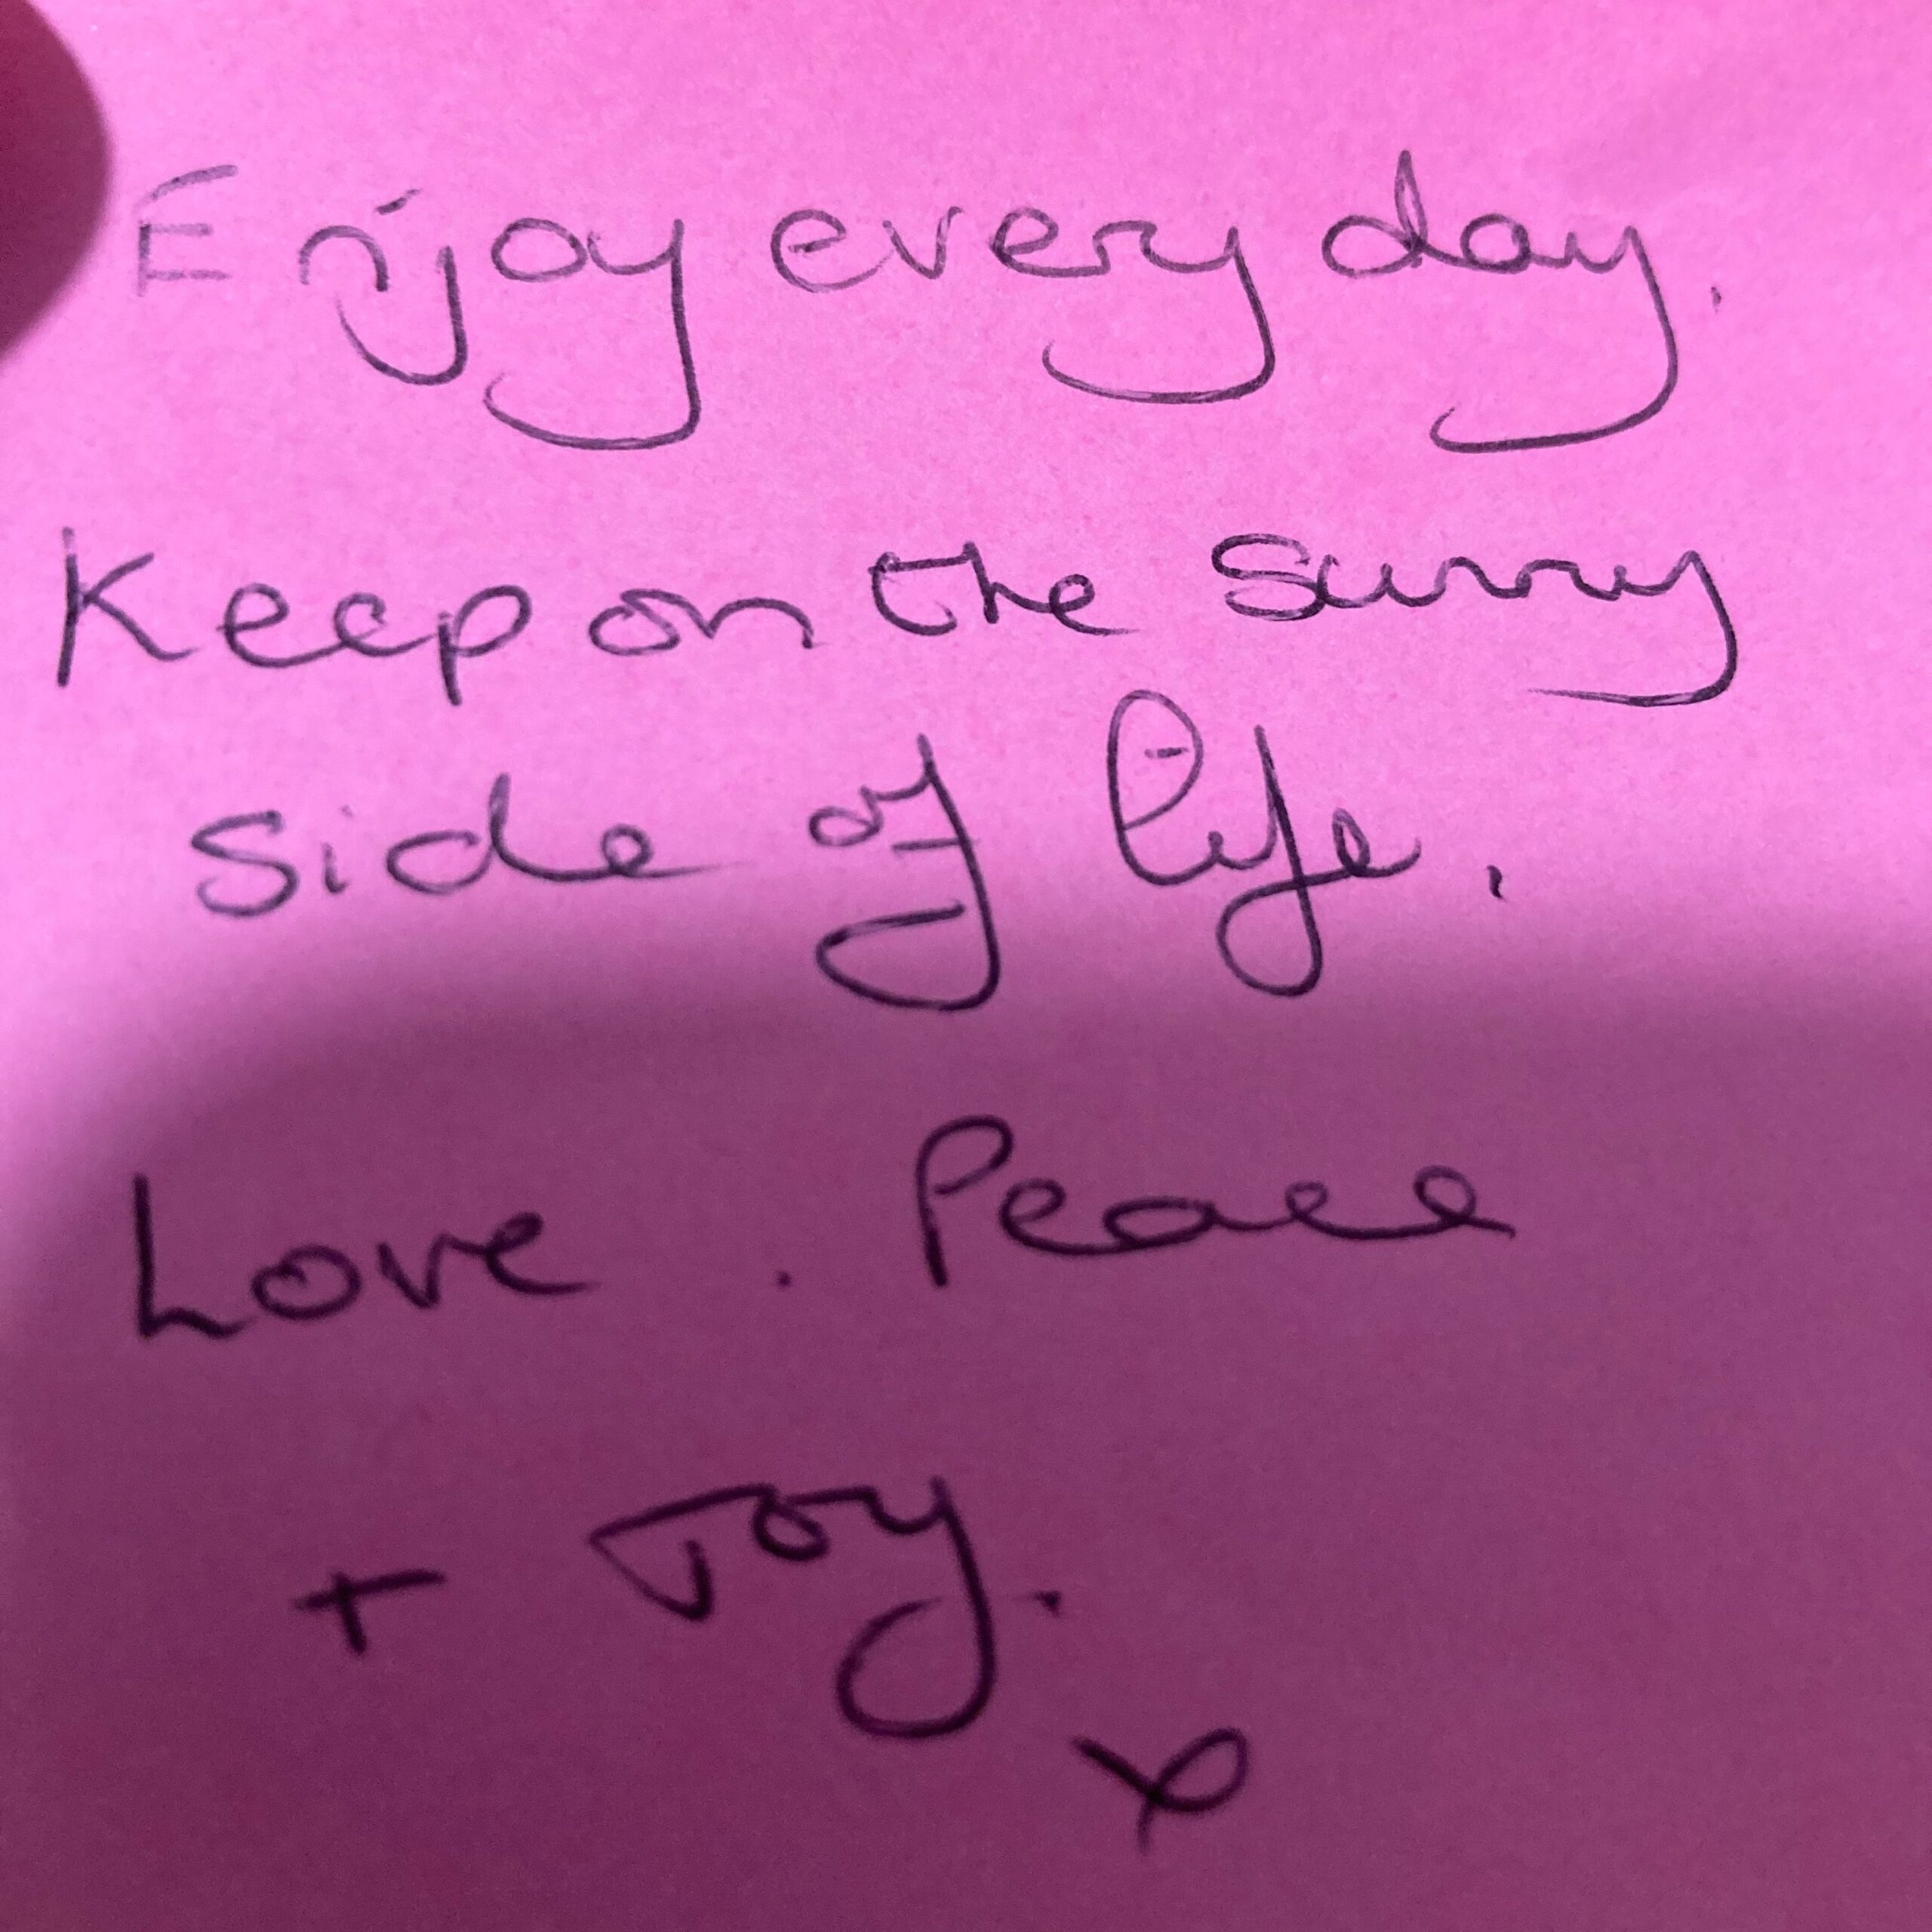 Enjoy every day.
Keep on the sunny
side of life.
Love . Peace
+ Joy.
x